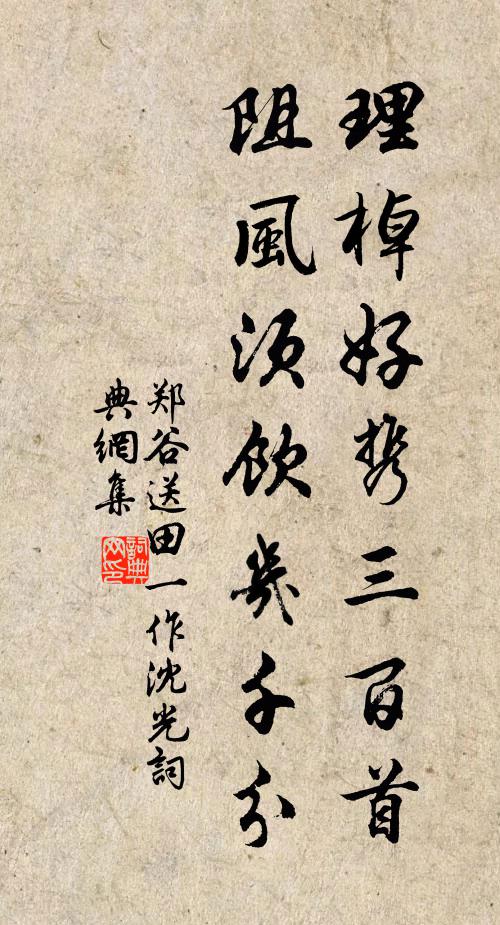 理棹好携三百首
阻風須飲幾千分
郑谷送田一作沈光詞
典網集
詞典網印